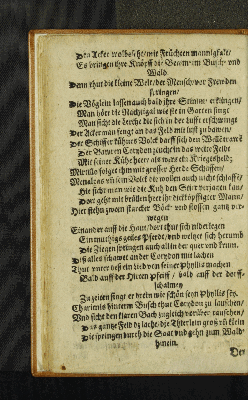 Den Acker wolbesäet mit Früchten mannigfalt/
Es bringen ihre Knöpff die Beum im Busch und
Wald
Denn thut die kleine Welt/ der Mensch/ vor Frewden
springen/
Die Vöglein lassen auch bald ihre Stimm erklingen/
Man hört die Nachtigal wie sie im Garten singt
Man sicht die Lerche die sich in der Lufft erschwingt
Der Ackerman fengt an das Feld mit lust zu bawen/
Der Schiffer kühners Volck darff sich dem
Der Bawren Corydon zeucht in das weite Feld
Mit seiner Kühe heer als wers ein Kriegesheld;
Mirtillo folget ihm mit grosser Herde Schaffen/
Menalcas und sein Volck die wollen auch nicht schlaffen/
Hie sicht man wie die Kuh den Stier
Dort geht mit brüllen heer ihr dickköpffigter Mann/
Hier stehn zween starcker Böck und stossen gantz ver-
wegen
Einander auff die Haut/ dort thut sich niderlegen
Ein mutigs geiles Pferd/ und weltzet sich herumb
Die Ziegen springen auch allen der quer und krum.
Diß alles schawet an der Corydon mit lachen
Thut unter deß ein Lied von seiner Phyllis machen
Bald auff der Hirten Pfeiff / bald auff der dorff-
schalmey
Zu zeiten singt er drein wie schön sey Phyllis frey.
Charitenis hinterm Busch thut Corydon zu lauschen/
Und sicht den klaren Bach zugleich vorüber rauschen/
Das gantze Feld lacht/ die Thierlein groß und klein
Die springen durch die Saat und gehn zum Wald
hinein.
Der